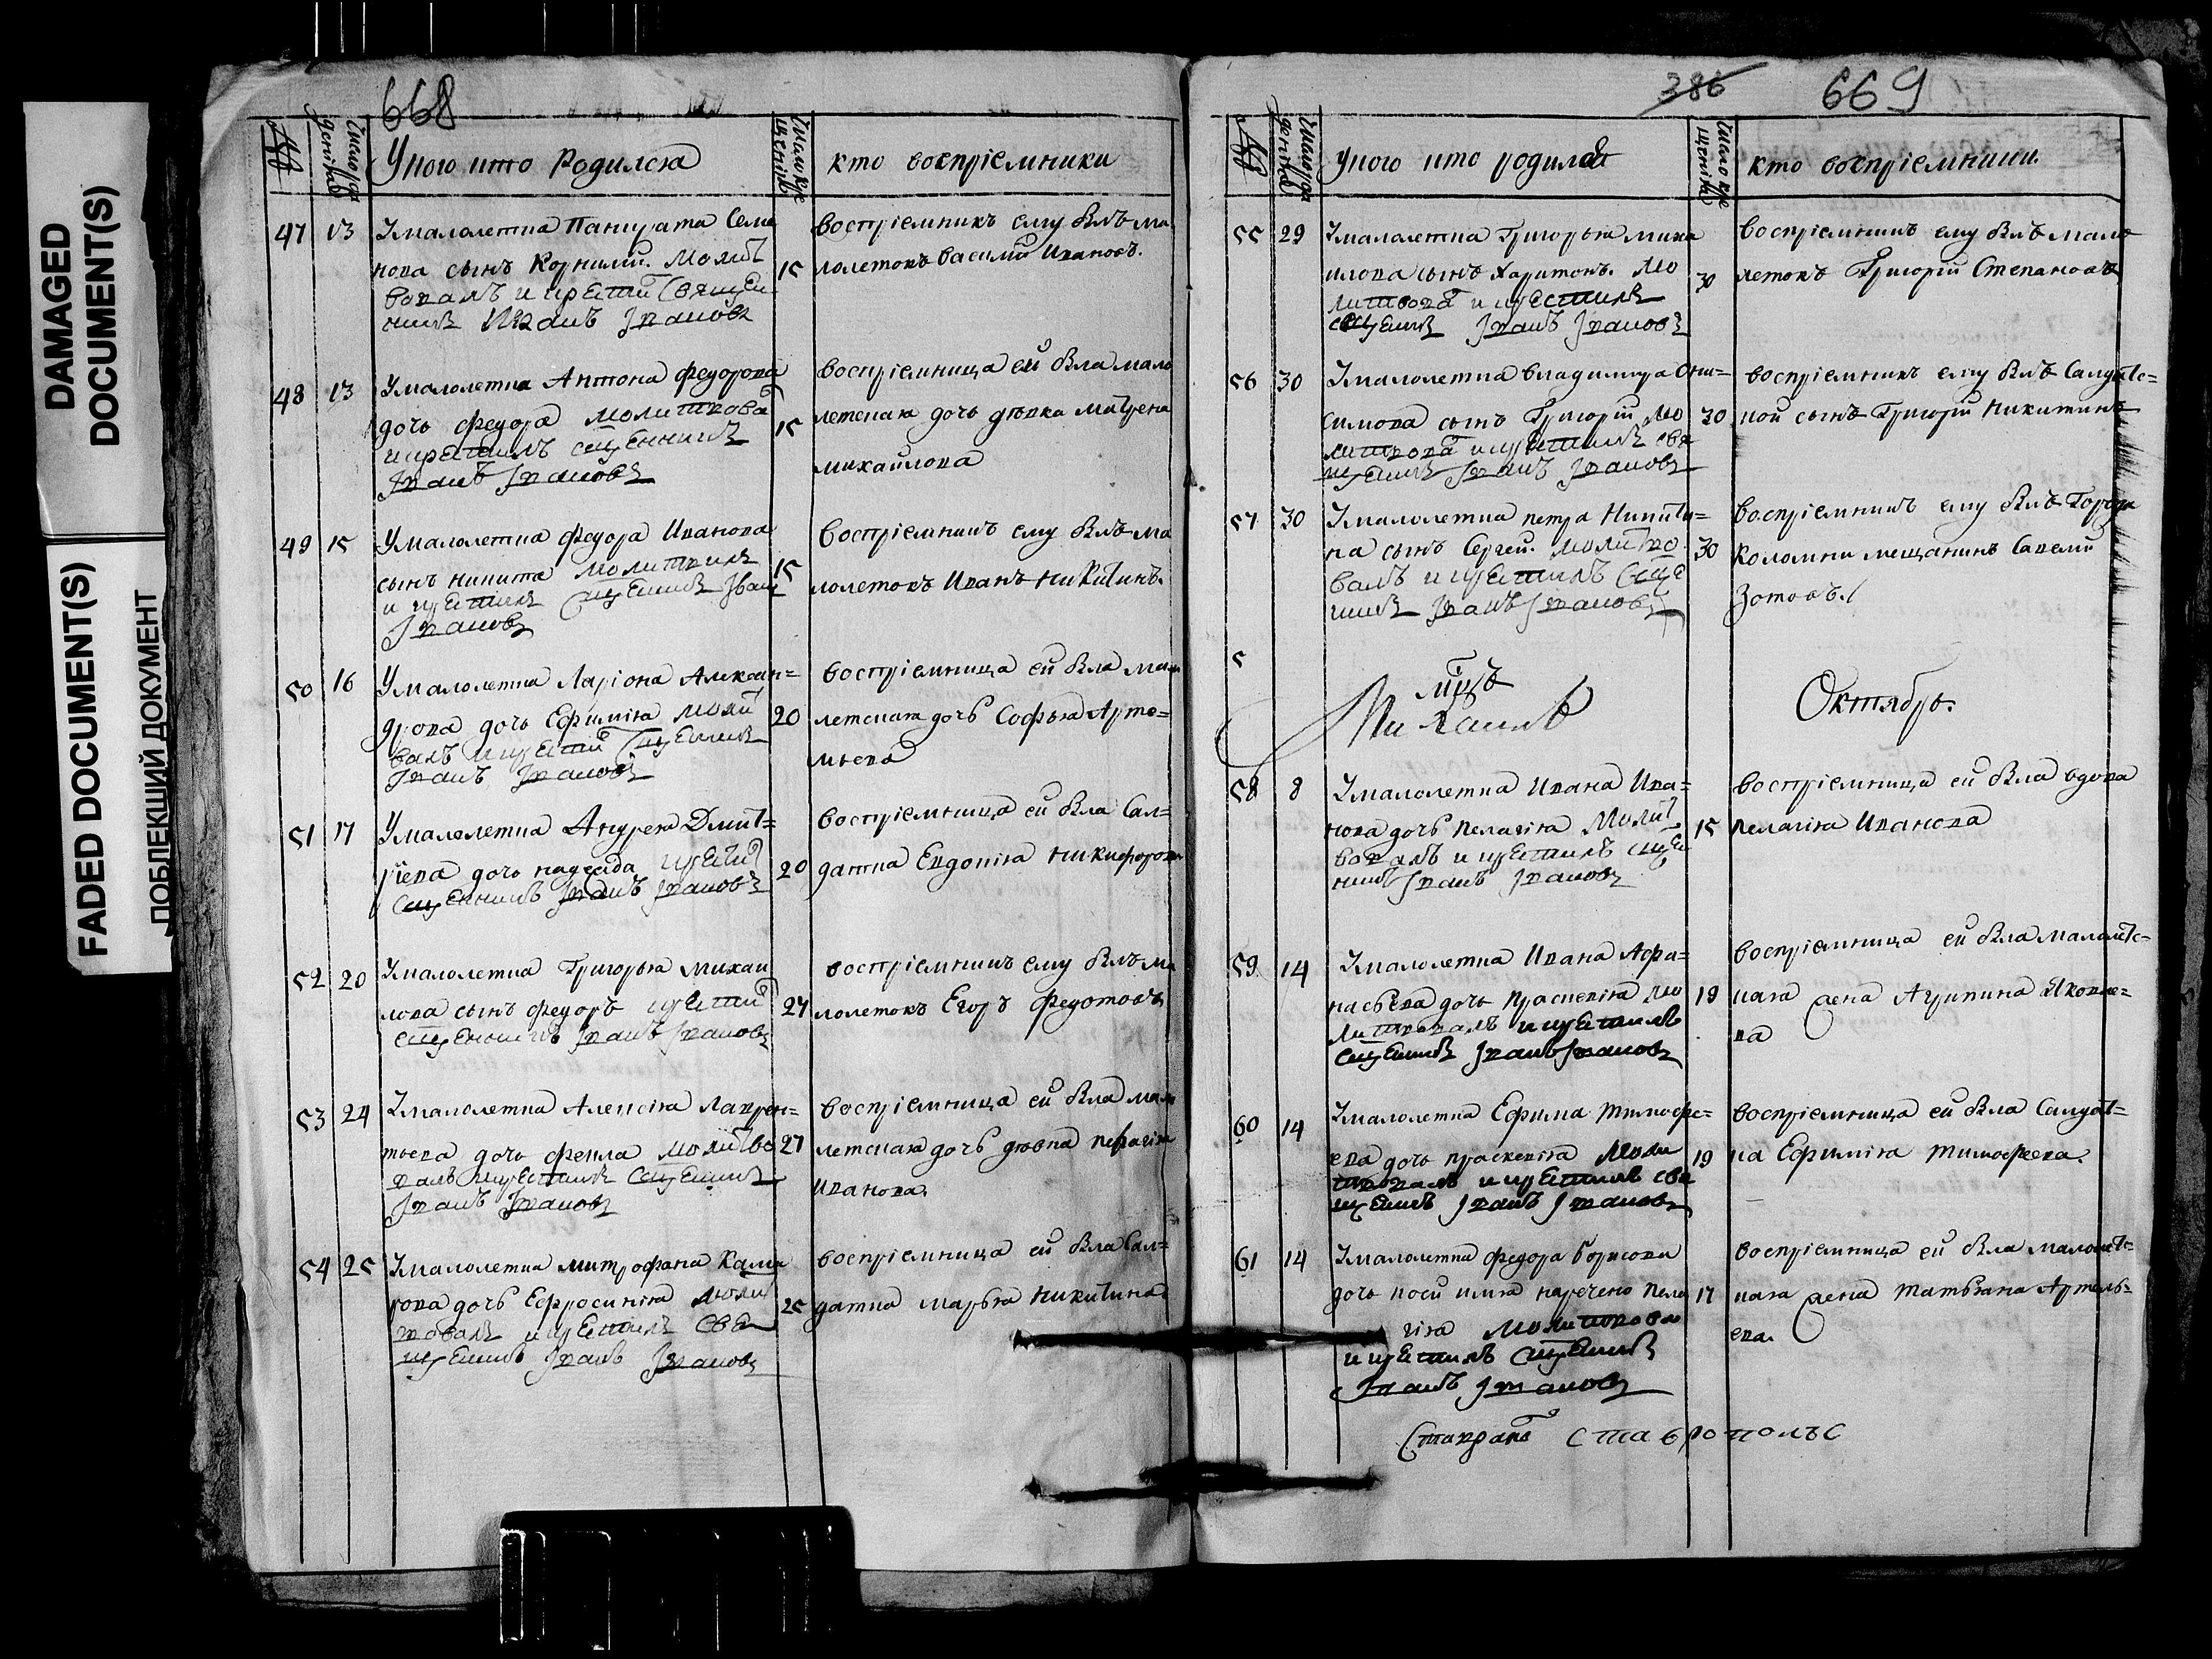 DAMAGED
DOCUMENT(S)
FADED DOCUMENT(S)
ПОБЛЕКЩИЙ ДОКУМЕНТ
668
Укого кто Родился
кто восприемники
47 13 Умалолетна Панкрата Семе
нова сынъ Корнилий. Молит
вовалъ и крестил Священ
никъ Иванъ Ивановъ
15
восприемникъ ему былъ ма
лолетокъ Василий Ивановъ.
48 13 Умалолетна Антона Федорова
дочь Федора молитвовал
и крестилъ сщенникъ
Иванъ Ивановъ
15
восприемница ей была мало
летская дочь девка Матрена
Михайлова
49 15 Умалолетна Федора Иванова
сынъ Никита
и крестилъ Иван
Ивановъ
15
восприемникъ ему былъ ма
лолетокъ Иванъ Никитинъ.
50 16 Умалолетна Лариона Алексан=
дрова дочь Ефимия молит
валъ и крестил
Иванъ Ивановъ
20
восприемница ей была мало
летская дочь Софья Арте=
мьева
51 17 Умалолетна Андрея Дмит=
риева дочь надежда крестил
сщенникъ Иванъ Ивановъ
20
восприемница ей была Сал=
датка Евдокия Никифорова
52 20 Умалолетна Григорья михаи
лова сынъ Федоръ крестил
сщенникъ Иванъ Ивановъ
27
восприемникъ ему былъ ма
лолетокъ Егоръ Федотовъ
53 24 Умалолетна Алексия Лаврен=
тьева дочь Фекла молитво
валъ и крестилъ
Иванъ Ивановъ
27
восприемница ей была мало
летская дочь девка Пелагия
Иванова.
54 25 Умалолетна митрофана
дочь Ефросиния моли
твовалъ и крестилъ свя
щенникъ Иванъ Ивановъ
25
восприемница ей была Сал=
датка Марья Никитина
386 669
Укого кто родился
кто восприемники.
55 29 Умалолетна Григорья миха
илова сынъ Харитонъ. мо
литвовал и крестилъ
сщенникъ Иванъ Ивановъ
30
восприемникъ ему былъ мало
летокъ Григорий Степановъ
56 30 Умалолетна Владимира Они=
симова сынъ Григорий мо
литвовал и крестилъ свя
щенникъ Иванъ Ивановъ
30
восприемникъ ему былъ Салдатс=
кой сынъ Григорий Никитинъ
57 30 Умалолетна петра Никити=
на сынъ Сергей. молитво
валъ и крестилъ сще
никъ Иванъ Ивановъ
30
восприемникъ ему былъ Города
Коломни мещанинъ Савелий
Зотовъ.
Октябрь.
58 8 Умалолетна Ивана Ива=
нова дочь Пелагия молит
вовалъ и крестилъ сщен
никъ Иванъ Ивановъ
15
восприемница ей была вдова
Пелагия Иванова
59 14 Умалолетна Ивана Афа=
насьева дочь Прасковия мо
литвовалъ и крестилъ
сщенникъ Иванъ Ивановъ
19
восприемница ей была малолетс=
кая жена Агрипина Яковле=
ва
60 14 Умалолетна Ефима Тимофе=
ева дочь Прасковия моли
твовалъ и крестилъ свя
щенникъ Иванъ Ивановъ
19
восприемница ей была Салдат=
ка Ефимия Тимофеева.
61 14 Умалолетна Федора Борисова
дочь коей имя наречено Пела
гия молитвовал
и крестилъ сщенникъ
Иванъ Ивановъ
17
восприемница ей была малолетс=
кая жена Татьяна Артемь=
ева.